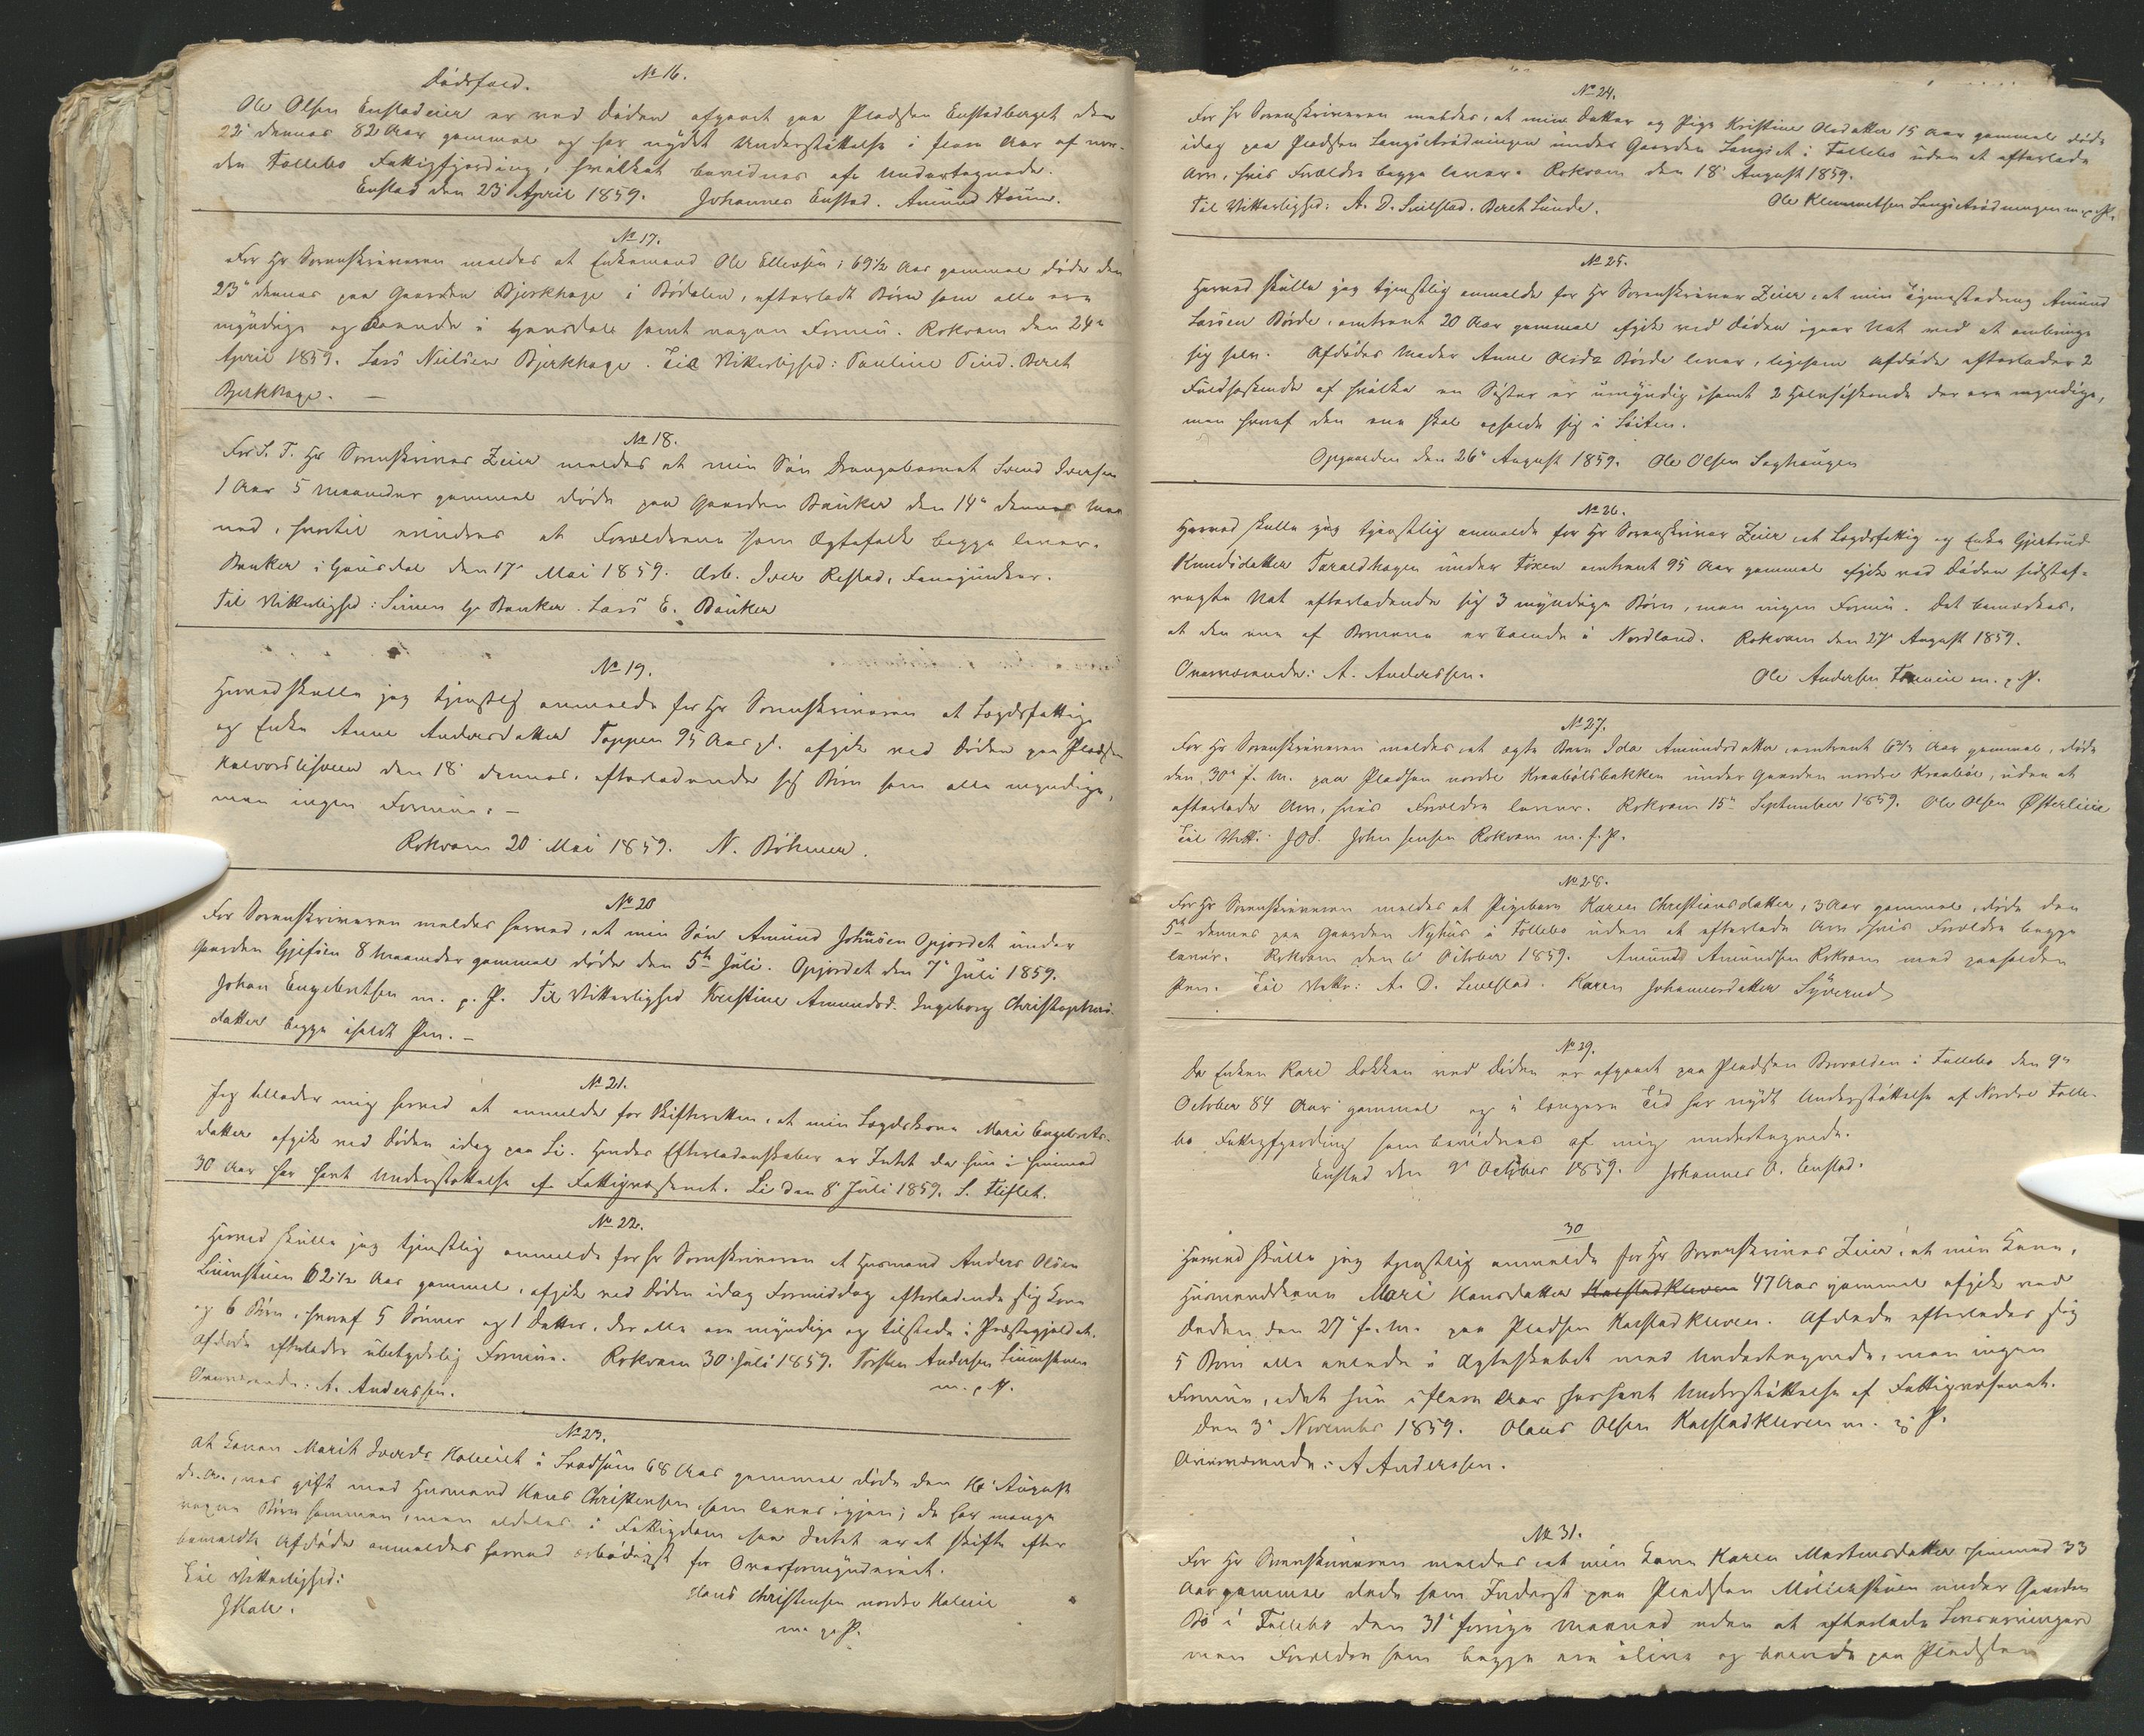 Dødsfald. No 16.
Ole Olsen Enstadeier er ved Døden afgaaet paa Pladsen Enstadberget den
22' dennes 82 Aar gammel og har nydt Understøttelse i flere Aar af nor-
dre Follebo Fattigfjerding, hvilket bevidnes af Undertegnede.
Enstad den 23' April 1859. Johannes Enstad. Amund
No 17.
For Hr Sorenskriveren meldes at Enkemand Ole Ellevsen, 69 1/2 Aar gammel døde den
23' dennes paa Gaarden Bjerkhage i Bødalen, efterladt Børn som alle ere
myndige og boende i Gausdal samt nogen Formue. Rokvam den 24'
April 1859. Lars Nielsen Bjerkhage. Til Vitterlighed: Pauline Beret
Bjerkhage. —
No 18.
For S. T. Hr Sorenskriver Zeier meldes at min Søn Drengebarnet Svend Iversen
1 Aar 5 Maaneder gammel døde paa Gaarden Bauker den 14' dennes Maa
ned, hvortil erindres at Forældrene som Ægtefolk begge lever.
Bauker i Gausdal den 17' Mai 1859. Ærb. Iver Refstad, Fanejunker.
Til Vitterlighed: Simen Bauker. Lars E. Bauker
No 19.
Herved skulle jeg tjenstlig anmelde for Hr Sorenskriveren at Lægdsfattig
og Enke Anne Andersdatter Toppen 95 Aar gl. afgik ved Døden paa Pladsen
den 18' dennes, efterladende sig Børn som alle myndige,
men ingen Formue. —
Rokvam 20' Mai 1859. N. Böhmer.
No 20
For Sorenskriveren meldes herved, at min Søn Amund Johnsen Opjordet under
Gaarden Gjefsen 8 Maaneder gammel døde den 5te Juli. Opjordet den 7' Juli 1859.
Johan Engebretsen m. p. P. Til Vitterlighed Kristine Amundsd. Ingeborg Christophers-
datter begge iholdt Pen. —
No 21.
Jeg tillader mig herved at anmelde for Skifteretten, at min Lægdskone Mari Engebrets-
datter afgik ved Døden idag paa Li. Hendes Efterladenskaber er Intet da hun i henimod
30 Aar har havt Understøttelse af Fattigvæsenet. Li den 8' Juli 1859. S. Fliflet.
No 22.
Herved skulle jeg tjenstlig anmelde for Hr Sorenskriveren at Husmand Anders Olsen
Liumstuen 62 1/2 Aar gammel, afgik ved Døden idag Formiddag efterladende sig Kone
og 6 Børn, hvoraf 5 Sønner og 1 Datter, der alle ere myndige og tilstede i Præstegjeldet.
Afdøde efterlader ubetydelig Formue. Rokvam 30' Juli 1859. Torsten Andersen Liumstuen
Overværende: A. Anderssen. m. p. P.
No 23.
At Konen Marit Iversd. i Svadsum 68 Aar gammel døde den 16' August
d. A., var gift med Husmand Hans Christensen, som lever igjen; de har mange
voxne Børn sammen, men aldeles i Fattigdom saa Intet er at skifte efter
bemeldte Afdøde anmeldes herved ærbødigst for Overformynderiet.
Til Vitterlighed: Hans Christensen nordre
m. p. P.
No 24.
For Hr Sorenskriveren meldes, at min Datter og Pige Kristine Olsdatter 15 Aar gammel døde
idag paa Pladsen Langsetrødningen under Gaarden Langset i Follebo uden at efterlade
Arv, hvis Forældre begge lever. Rokvam den 18' August 1859.
Til Vitterlighed: A. D. Beret Lunde. Ole Klemmetsen Langsetrødningen m. p. P.
No 25.
Herved skulle jeg tjenstlig anmelde for Hr Sorenskriver Zeier, at min Amund
Larsen Børde, omtrent 20 Aar gammel afgik ved Døden igaar Nat ved at ombringe
sig selv. Afdødes Moder Anne Olsd. Børde lever, ligesom Afdøde efterlader 2
Fuldsøskende af hvilke en Søster er umyndig, samt 2 Halvsøskende der ere myndige,
men hvoraf den ene skal opholde sig i
Opgaarden den 26' August 1859. Ole Olsen Saghaugen
No 26.
Herved skulle jeg tjenstlig anmelde for Hr Sorenskriver Zeier, at Lægdsfattig og Enke Gjertrud
Knudsdatter Taraldhagen under omtrent 95 Aar gammel afgik ved Døden sidstaf-
vigte Nat efterladende sig 3 myndige Børn, men ingen Formue. Det bemærkes,
at den ene af Børnene er boende i Nordland. Rokvam den 27' August 1859.
Overværende: A. Anderssen. Ole Andersen m. p. P.
No 27.
For Hr Sorenskriveren meldes, at ægte Barn Ida Amundsdatter, omtrent 6 Aar gammel, døde
den 30' f. M. paa Pladsen nordre Kraabølsbakken under Gaarden nordre Kraabøl, uden at
efterlade Arv, hvis Forældre lever. Rokvam 15' September 1859. Ole Olsen Østerlie
Til Vitt: John Jensen Rokvam m. f. P.
No 28.
For Hr Sorenskriveren meldes at Pigebarn Karen Christiansdatter, 3 Aar gammel, døde den
5te dennes paa Gaarden Nyhus i Follebo uden at efterlade Arv hvis Forældre begge
lever. Rokvam den 6' October 1859. Amund Amundsen Rokvam med paaholden
Pen. Til Vitt: A. D. Karen Johannesdatter
No 29.
Da Enken Kari Dokken ved Døden er afgaaet paa Pladsen i Follebo den 9'
October 84 Aar gammel og i længere Tid har nydt Understøttelse af Nordre Folle-
bo Fattigfjerding som bevidnes af mig undertegnede.
Enstad den 9' October 1859. Johannes O. Enstad.
30
Herved skulle jeg tjenstlig anmelde for Hr Sorenskriver Zeier, at min Kone,
Husmandskone Mari Hansdatter Karstadkleven 47 Aar gammel afgik ved
Døden den 27' f. M. paa Pladsen Karstadkleven. Afdøde efterlader sig
5 Børn alle avlede i Ægteskabet med Undertegnede, men ingen
Formue, idet hun i flere Aar har havt Understøttelse af Fattigvæsenet.
Den 3' November 1859. Olaus Olsen Karstadkleven m. p. P.
Overværende: A Anderssen.
No 31.
For Hr Sorenskriveren meldes, at min Kone Karen Martinsdatter henimod 33
Aar gammel døde som Inderst paa Pladsen Möllerstuen under Gaarden
Bø i Follebo den 31' forrige Maaned uden at efterlade Livsarvinger
men Forældre som begge ere ilive og boende paa Pladsen